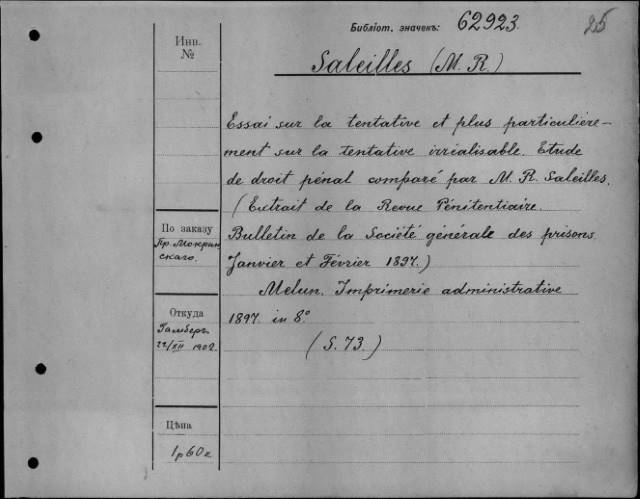 Библіот. значекъ: 62923. 25
Инв.
№
Saleilles (M. R.)
Essai sur la tentative et plus particulière-
ment sur la tentative irrialisable. Etude
de droit pénal comparé par M. R. Saleilles.
(Extrait de la Revue Pénitentiaire.
По заказу
Пр. Мокрин
скаго.
Bulletin de la Société générale des prisons
Janvier et Février 1897.)
Melun. Imprimerie administrative
Откуда
Гамберъ
22/XII 1902.
1897. in 8°
(S. 73.)
Цѣна
1р 60к